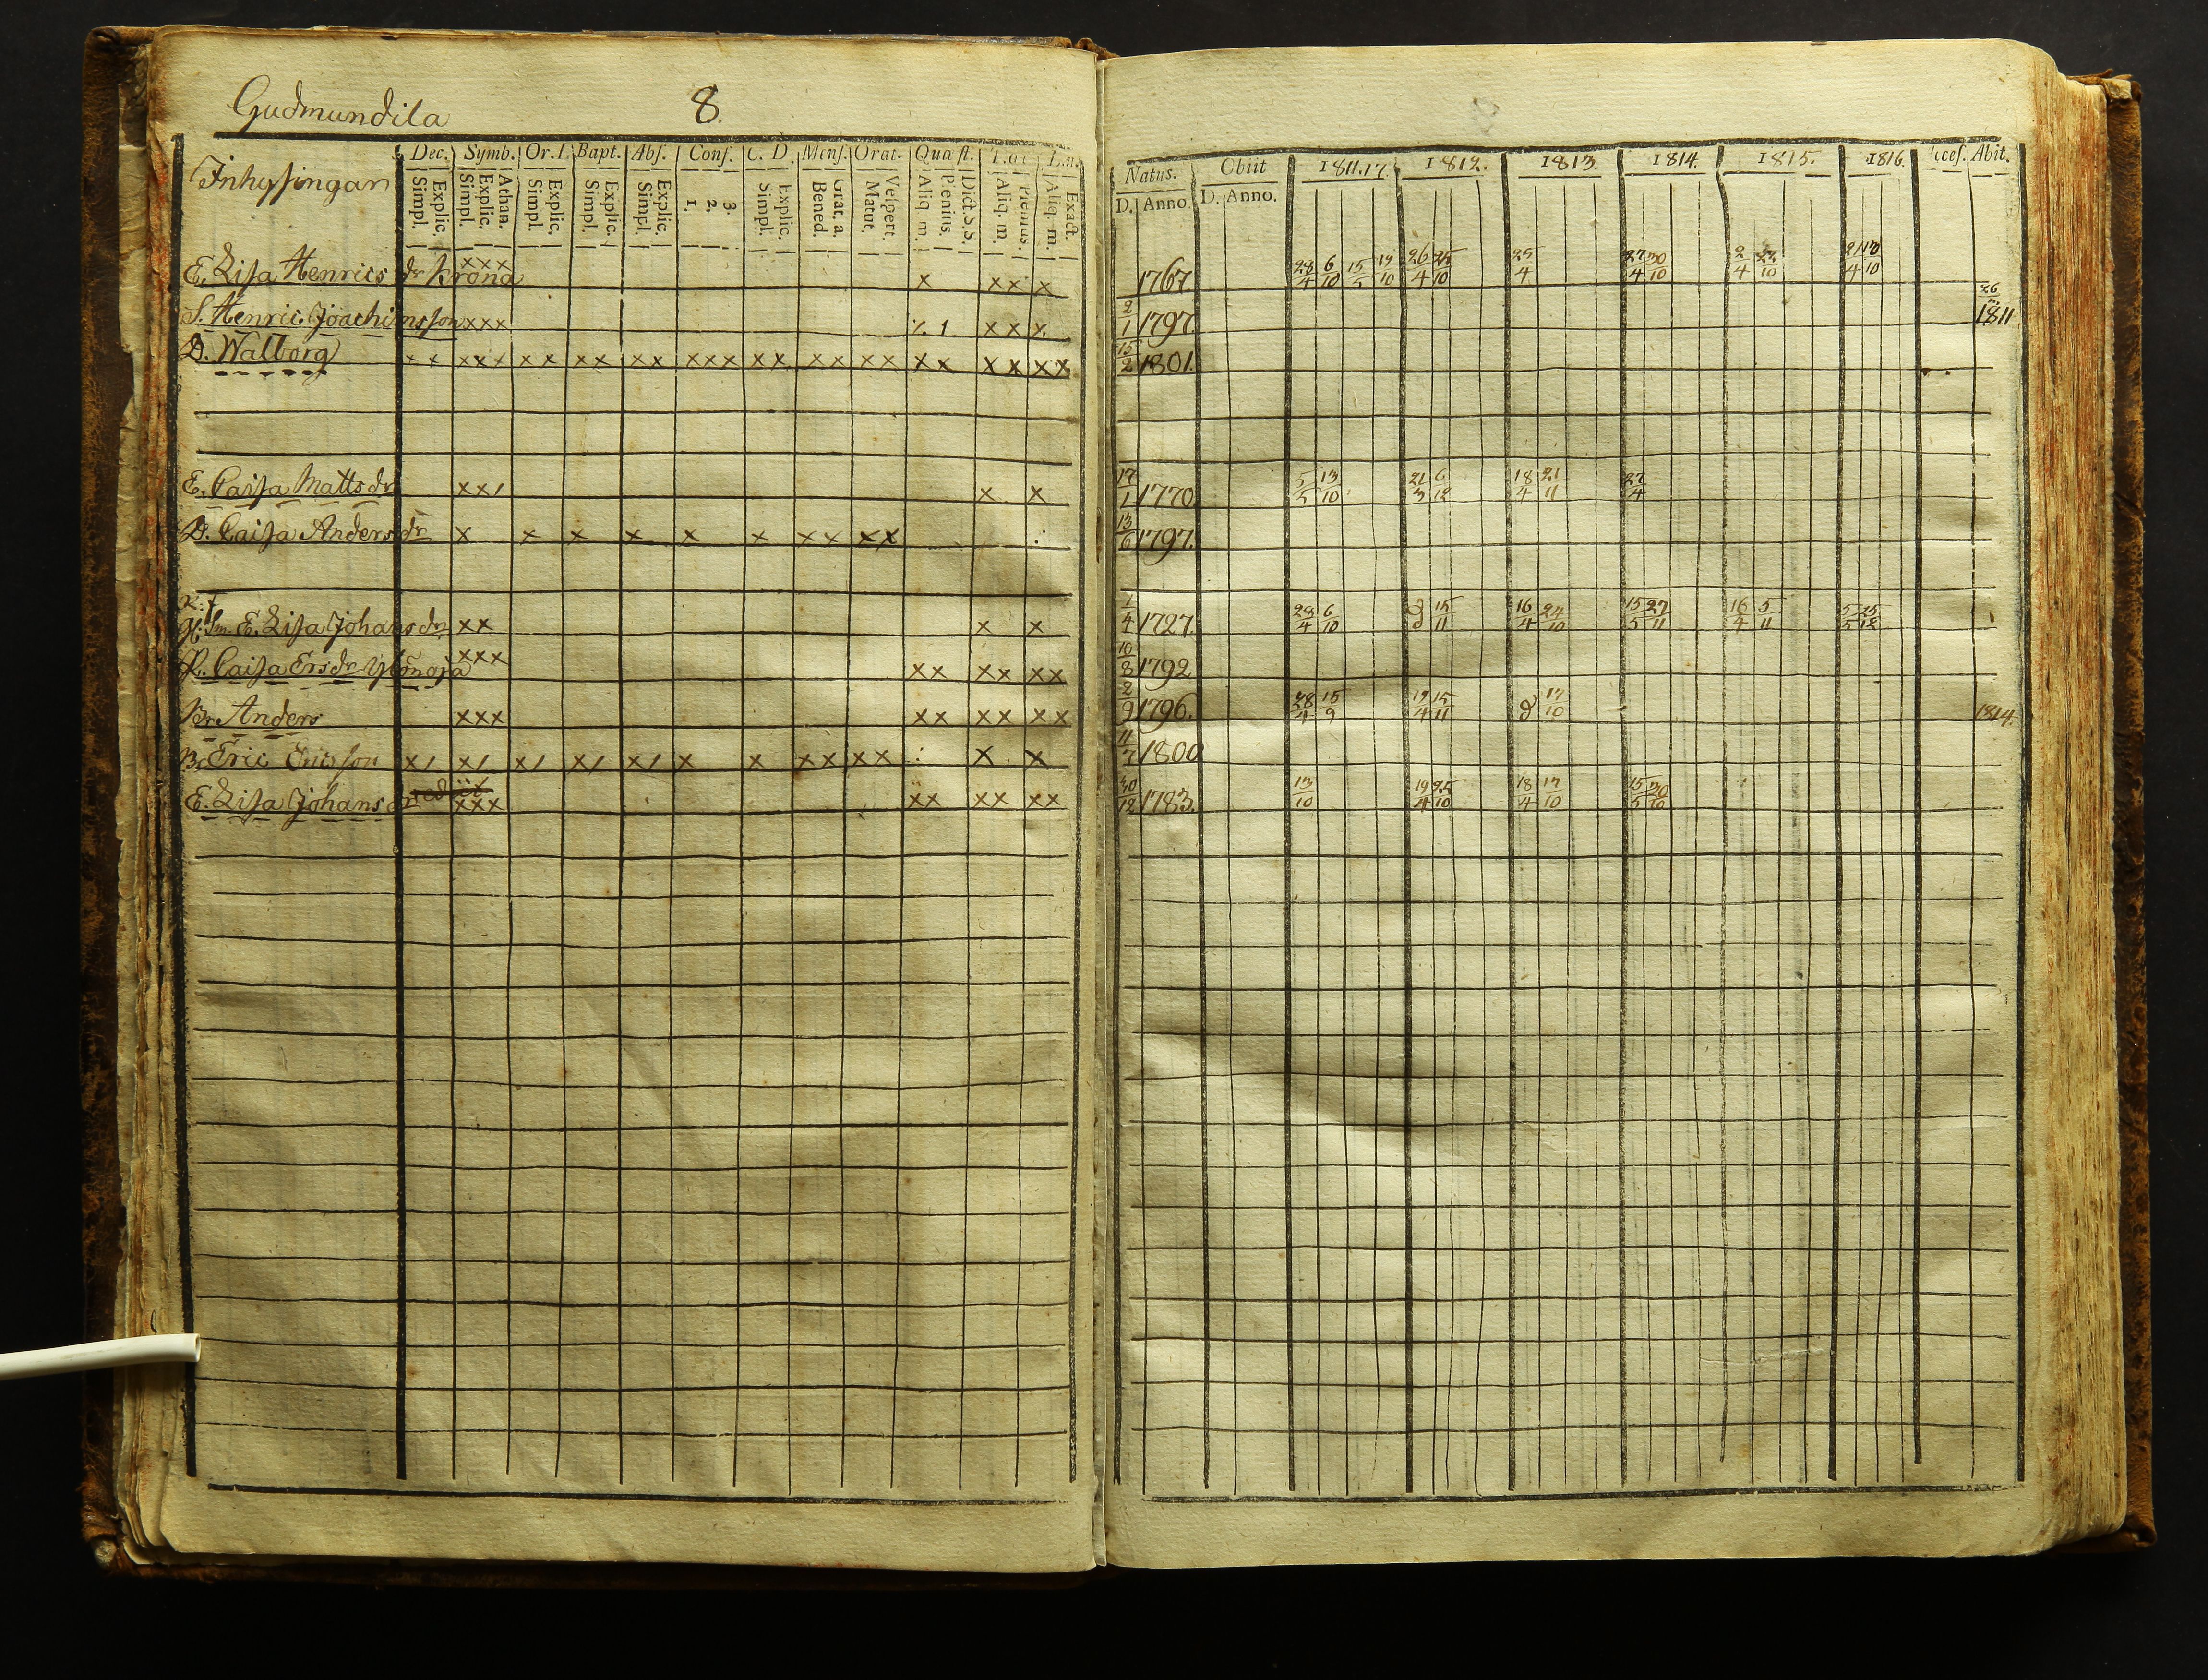 Gudmundila 8
Inhysingar
Dec. Symb. Or. Bapt. Abs. Conf. C. D. Mens. Orat. Quæst.
Simpl. Explic. Simpl. Explic. Athan. Simpl. Explic. Simpl. Explic. Simpl. Explic. 1. 2. 3. Simpl. Explic. Bened. Grat. a. Matut. Vespert. Aliq. m. Plenius. Dict. S.S. Aliq. m. Plenius. Aliq. m. Exact.
Natus. Obiit 1811.17 1812. 1813 1814. 1815. 1816. Abit.
D. Anno D. Anno.
E. Lisa Henrics dr Krona xxx x xx x 1767 28/4 6/10 15/5 19/10 26/4 25/10 25/4 27/4 30/10 2/4 22/10 21/4 10/10
S. Henric Joachimsson xxx xx x 2/1 1797. 1811
D. Walborg xx xxx xx xx xx xxx xx xx xx xx xx xx 15/2 1801.
E. Caisa Matts dr xx/ x x 17/1 1770. 5/5 13/10 21/3 6/12 18/4 21/11 27/4
D. Caisa Anders dr x x x x x x xx xx 13/6 1797.
E. Lisa Johans dr xx x x 1727. 28/4 6/10 15/11 16/4 24/10 15/5 27/11 16/4 5/11 5/5 25/12
Caisa Ers dr xxx xx xx xx 10/8 1792
Br. Anders xxx xx xx xx 2/9 1796. 28/4 15/9 19/4 15/11 17/10 1814.
Br. Eric Ericsson x/ x/ x/ x/ x/ x x xx xx x x 11/7 1800
E. Lisa Johans dr xxx xx xx xx 30/12 1783. 13/10 19/4 25/10 18/4 17/10 15/5 30/10